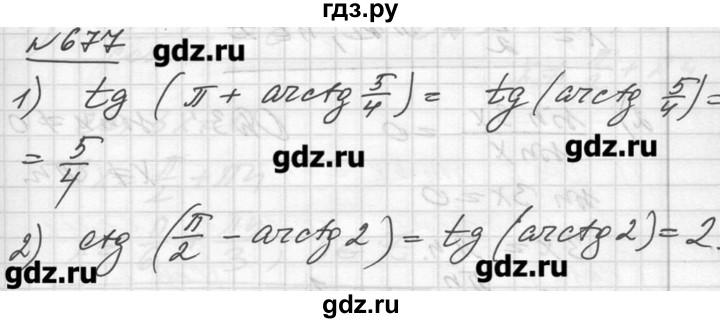 гдз.ру
№677
gdz.ru
1) tg (π + arctg 5/4) = tg (arctg 5/4) =
gdz.ru
gdz.ru
= 5/4
2) ctg (π/2 - arctg 2) = tg (arctg 2) = 2.
gdz.ru
gdz.ru
gdz.ru